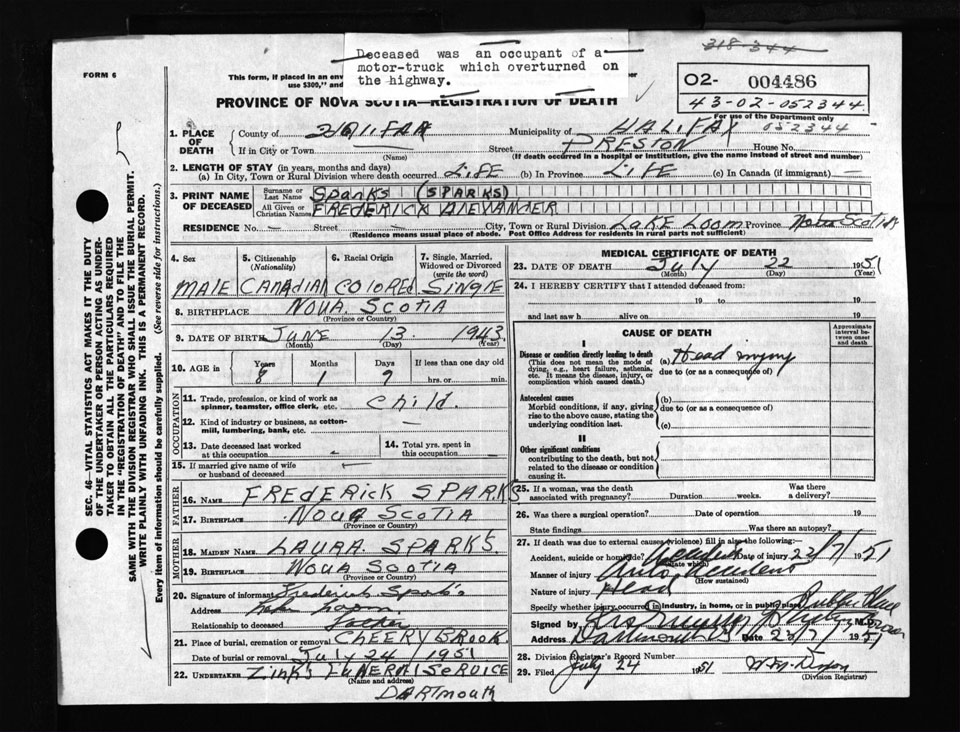 318-344
Deceased was an occupant of a
motor-truck which overturned on
the highway.
FORM 6
This form, if placed in an env
use $300," and
O2- 004486
43-02-052344
For use of the Department only
052344
PROVINCE OF NOVA SCOTIA—REGISTRATION OF DEATH
1. PLACE OF DEATH
County of HALIFAX Municipality of HALIFAX
If in City or Town (Name) Street PRESTON House No.
(If death occurred in a hospital or institution, give the name instead of street and number)
2. LENGTH OF STAY (in years, months and days)
(a) In City, Town or Rural Division where death occurred LIFE (b) In Province LIFE (c) In Canada (if immigrant) —
3. PRINT NAME OF DECEASED
Surname or Last Name Spanks (SPARKS)
All Given or Christian Names FREDERICK ALEXANDER
RESIDENCE No. — Street — City, Town or Rural Division LAKE LOOM Province Nova Scotia
(Residence means usual place of abode. Post Office Address for residents in rural parts not sufficient)
4. Sex MALE
5. Citizenship (Nationality) CANADIAN
6. Racial Origin COLORED
7. Single, Married, Widowed or Divorced (write the word) SINGLE
8. BIRTHPLACE NOVA SCOTIA
(Province or Country)
9. DATE OF BIRTH JUNE 13 1943
(Month) (Day) (Year)
10. AGE in Years 8 Months 1 Days 9 If less than one day old
hrs. or min.
OCCUPATION
11. Trade, profession, or kind of work as
spinner, teamster, office clerk, etc. Child.
12. Kind of industry or business, as cotton-
mill, lumbering, bank, etc. —
13. Date deceased last worked
at this occupation -
14. Total yrs. spent in
this occupation —
15. If married give name of wife
or husband of deceased —
FATHER
16. NAME FREDERICK SPARKS
17. BIRTHPLACE NOVA SCOTIA
(Province or Country)
MOTHER
18. MAIDEN NAME LAURA SPARKS
19. BIRTHPLACE NOVA SCOTIA
(Province or Country)
20. Signature of informant Frederick Sparks
Address Lake Loom
Relationship to deceased Father
21. Place of burial, cremation or removal CHEERY BROOK
Date of burial or removal July 24 1951
22. UNDERTAKER ZINK'S FUNERAL SERVICE
DARTMOUTH
MEDICAL CERTIFICATE OF DEATH
23. DATE OF DEATH July 22 1951
(Month) (Day) (Year)
24. I HEREBY CERTIFY that I attended deceased from:
19 to 19
and last saw h alive on 19
CAUSE OF DEATH
Approximate interval between onset and death
I
Disease or condition directly leading to death
(This does not mean the mode of
dying, e.g., heart failure, asthenia,
etc. It means the disease, injury, or
complication which caused death.)
(a) Head injury
due to (or as a consequence of)
Antecedent causes
Morbid conditions, if any, giving
rise to the above cause, stating the
underlying condition last.
(b)
due to (or as a consequence of)
(c)
II
Other significant conditions
contributing to the death, but not
related to the disease or condition
causing it.
25. If a woman, was the death
associated with pregnancy? Duration weeks. Was there
a delivery?
26. Was there a surgical operation? Date of operation 19
State findings Was there an autopsy?
27. If death was due to external causes (violence) fill in also the following:—
Accident, suicide or homicide? Accident Date of injury 22/7/1951
(State which)
Manner of injury Auto Accident
(How sustained)
Nature of injury Head
Specify whether injury occurred in industry, in home, or in public place Public Place
Signed by M.D.
Address Dartmouth NS Date 23/7/1951
28. Division Registrar's Record Number
29. Filed July 24 1951
(Division Registrar)
SEC. 46—VITAL STATISTICS ACT MAKES IT THE DUTY
OF THE UNDERTAKER OR PERSON ACTING AS UNDER-
TAKER TO OBTAIN ALL THE PARTICULARS REQUIRED
IN THE "REGISTRATION OF DEATH" AND TO FILE THE
SAME WITH THE DIVISION REGISTRAR WHO SHALL ISSUE THE BURIAL PERMIT.
WRITE PLAINLY WITH UNFADING INK. THIS IS A PERMANENT RECORD.
Every item of information should be carefully supplied. (See reverse side for instructions.)